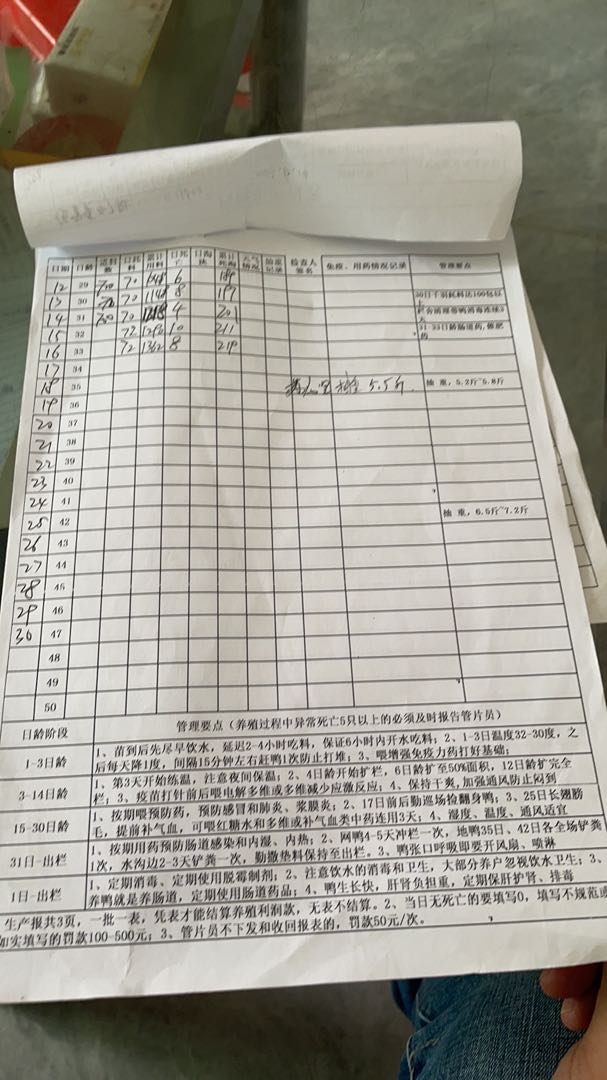 日期 日龄 日耗料 累计用料 日死亡 日淘汰 累计死淘 天气情况 抽重记录 检查人签名 免疫、用药情况记录 管理要点
12 29 70 6 189
13 30 70 1148 8 197 30日千羽耗料达100包以上
14 31 70 1218 4 201 栏舍清理带鸭消毒连续3天
15 32 72 1290 10 211 31-33日龄肠道药,催肥药
16 33 72 1362 8 219
17 34
18 35 5.5斤 抽 重,5.2斤~5.8斤
19 36
20 37
21 38
22 39
23 40
24 41
25 42 抽 重,6.5斤~7.2斤
26 43
27 44
28 45
29 46
30 47
48
49
50
日龄阶段 管理要点(养殖过程中异常死亡5只以上的必须及时报告管片员)
1-3日龄 1、苗到后先尽早饮水,延迟2-4小时吃料,保证6小时内开水吃料;2、1-3日温度32-30度,之
后每天降1度,间隔15分钟左右赶鸭1次防止打堆;3、喂增强免疫力药打好基础;
3-14日龄 1、第3天开始练温,注意夜间保温;2、4日龄开始扩栏,6日龄扩至50%面积,12日龄扩完全
栏;3、疫苗打针前后喂电解多维或多维减少应激反应;4、保持干爽,加强通风防止闷到
15-30日龄 1、按期喂预防药,预防感冒和肺炎、浆膜炎;2、17日前后勤巡场捡翻身鸭;3、25日长翅膀
毛,提前补气血,可喂红糖水和多维或补气血类中药连用3天;4、湿度、温度、通风适宜
31日-出栏 1、按期用药预防肠道感染和内湿、内热;2、网鸭4-5天冲栏一次,地鸭35日、42日各全场铲粪
1次,水沟边2-3天铲粪一次,勤撒垫料保持至出栏。3、鸭张口呼吸即要开风扇、喷淋
1日-出栏 1、定期消毒、定期使用脱霉制剂;2、注意饮水的消毒和卫生,大部分养户忽视饮水卫生;3、
养鸭就是养肠道,定期使用肠道药品;4、鸭生长快,肝肾负担重,定期保肝护肾、排毒
生产报共3页,一批一表,凭表才能结算养殖利润款,无表不结算。2、当日无死亡的要填写0,填写不规范或
如实填写的罚款100-500元;3、管片员不下发和收回报表的,罚款50元/次。